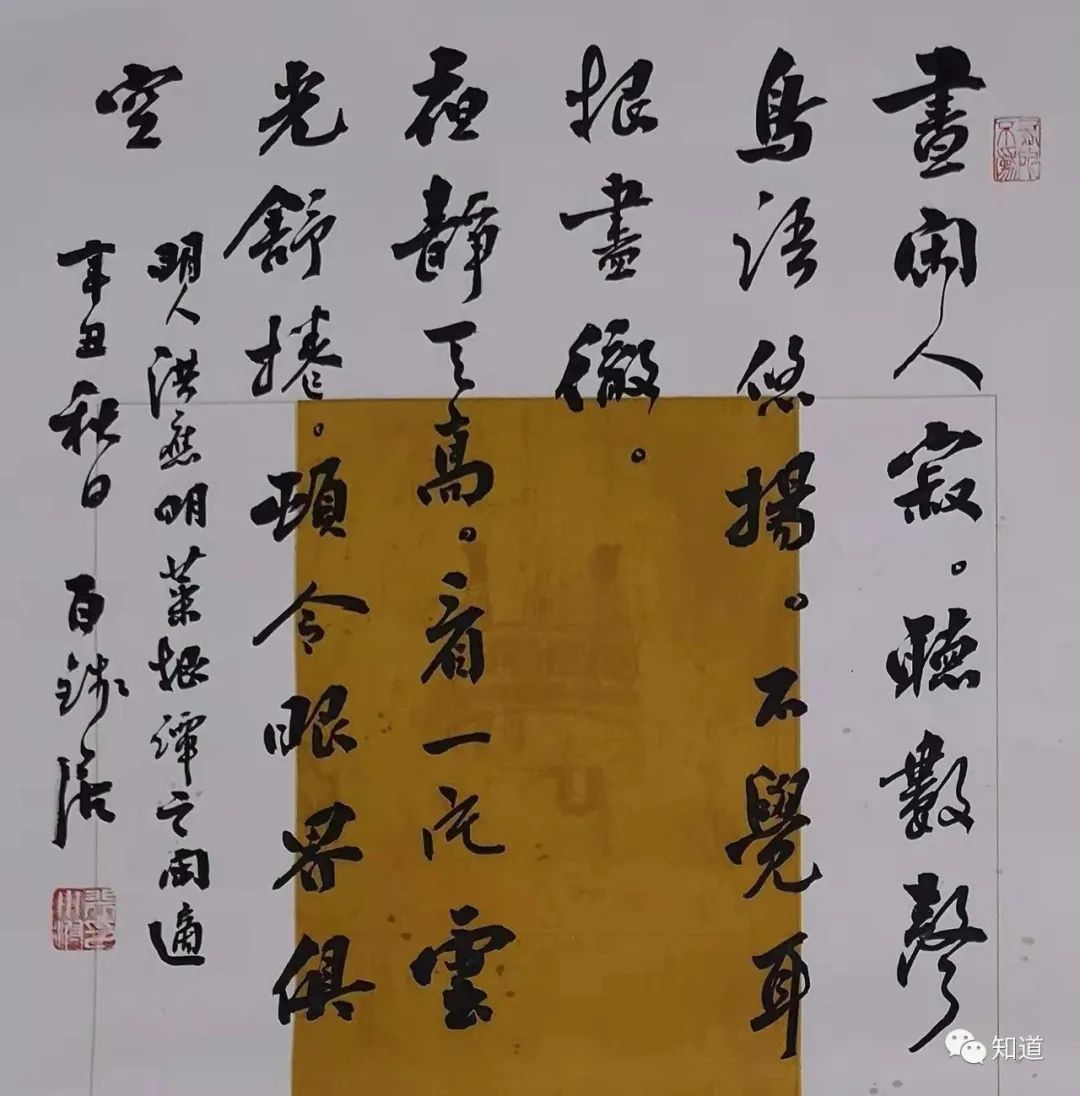 晝閑人寂。聽數聲
鳥語悠揚。不覺耳
根盡徹。
夜靜天高。看一片雲
光舒捲。頓令眼界俱
空
明人洪應明菜根譚之閑適
辛丑秋日 百
知道